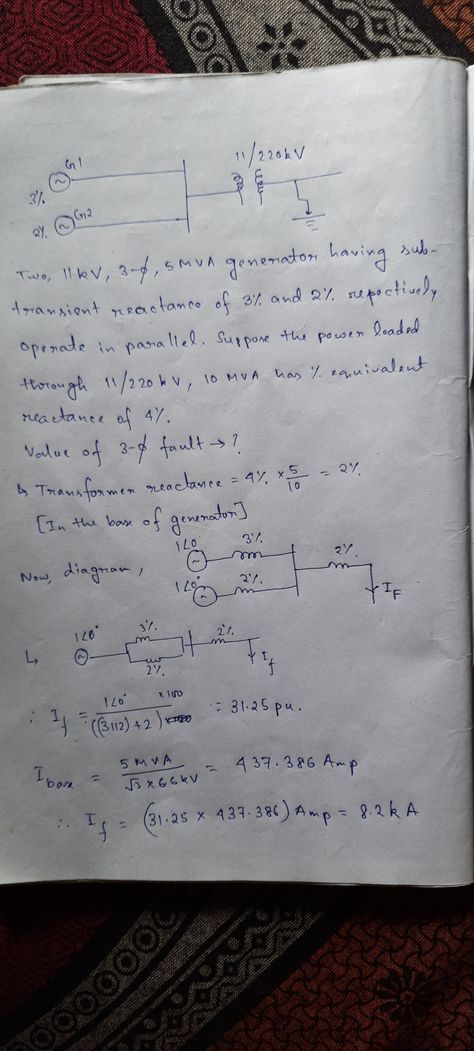 11/220kV
G1
3%.
G2
2%.
Two, 11kV, 3-φ, 5MVA generator having sub-
transient reactance of 3% and 2% repectively
operate in parallel. Suppose the power loaded
through 11/220kV, 10 MVA has % equivalent
reactance of 4%.
Value of 3-φ fault → ?
↳ Transformer reactance = 4% × 5/10 = 2%.
[In the base of generator]
Now, diagram,
1∠0° 3%. 2%.
1∠0° 2%. I_F
↳ 1∠0° 3%. 2%.
2%. I_f
∴ I_f = 1∠0° ×100 / ((3||2)+2) = 31.25 pu.
I base = 5MVA / √3×66kV = 437.386 Amp
∴ I_f = (31.25 × 437.386) Amp = 8.2kA